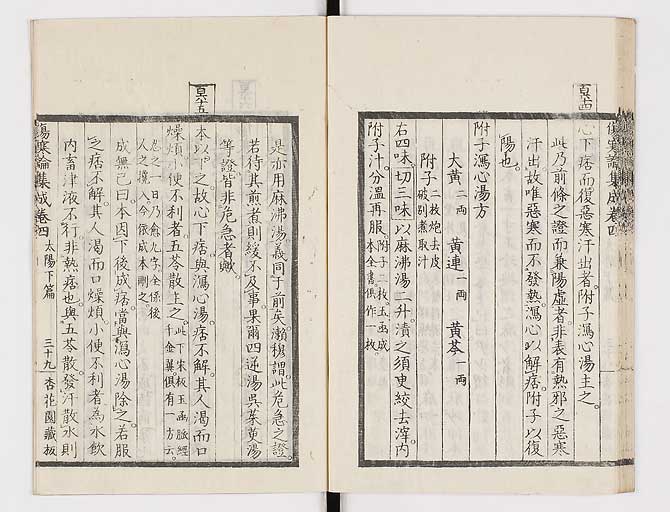 百五十四
心下痞而復惡寒汗出者附子瀉心湯主之
此乃前條之證而兼陽虛者非表有熱邪之惡寒
汗出故唯惡寒而不發熱瀉心以解痞附子以復
陽也
附子瀉心湯方
大黃二兩 黃連一兩 黃芩一兩
附子二枚炮去皮破別煮取汁
右四味切三味以麻沸湯二升漬之須臾絞去滓內
附子汁分溫再服附子二枚玉函成本全書俱作一枚
是亦用麻沸湯義同于前矣瀨穆謂此危急之證
若待其煎者則緩不及事果爾四逆湯吳茱萸湯
等證皆非危急者歟
百五十五
本以下之故心下痞與瀉心湯痞不解其人渴而口
燥煩小便不利者五苓散主之此下宋板玉函脈經千金翼俱有一方云
忍之一日乃愈九字全係後人之攙入今依成本刪之
成無己曰本因下後成痞當與瀉心湯除之若服
之痞不解其人渴而口燥煩小便不利者為水飲
內畜津液不行非熱痞也與五苓散發汗散水則
傷寒論集成卷四 太陽下篇 三十九 杏花園藏板